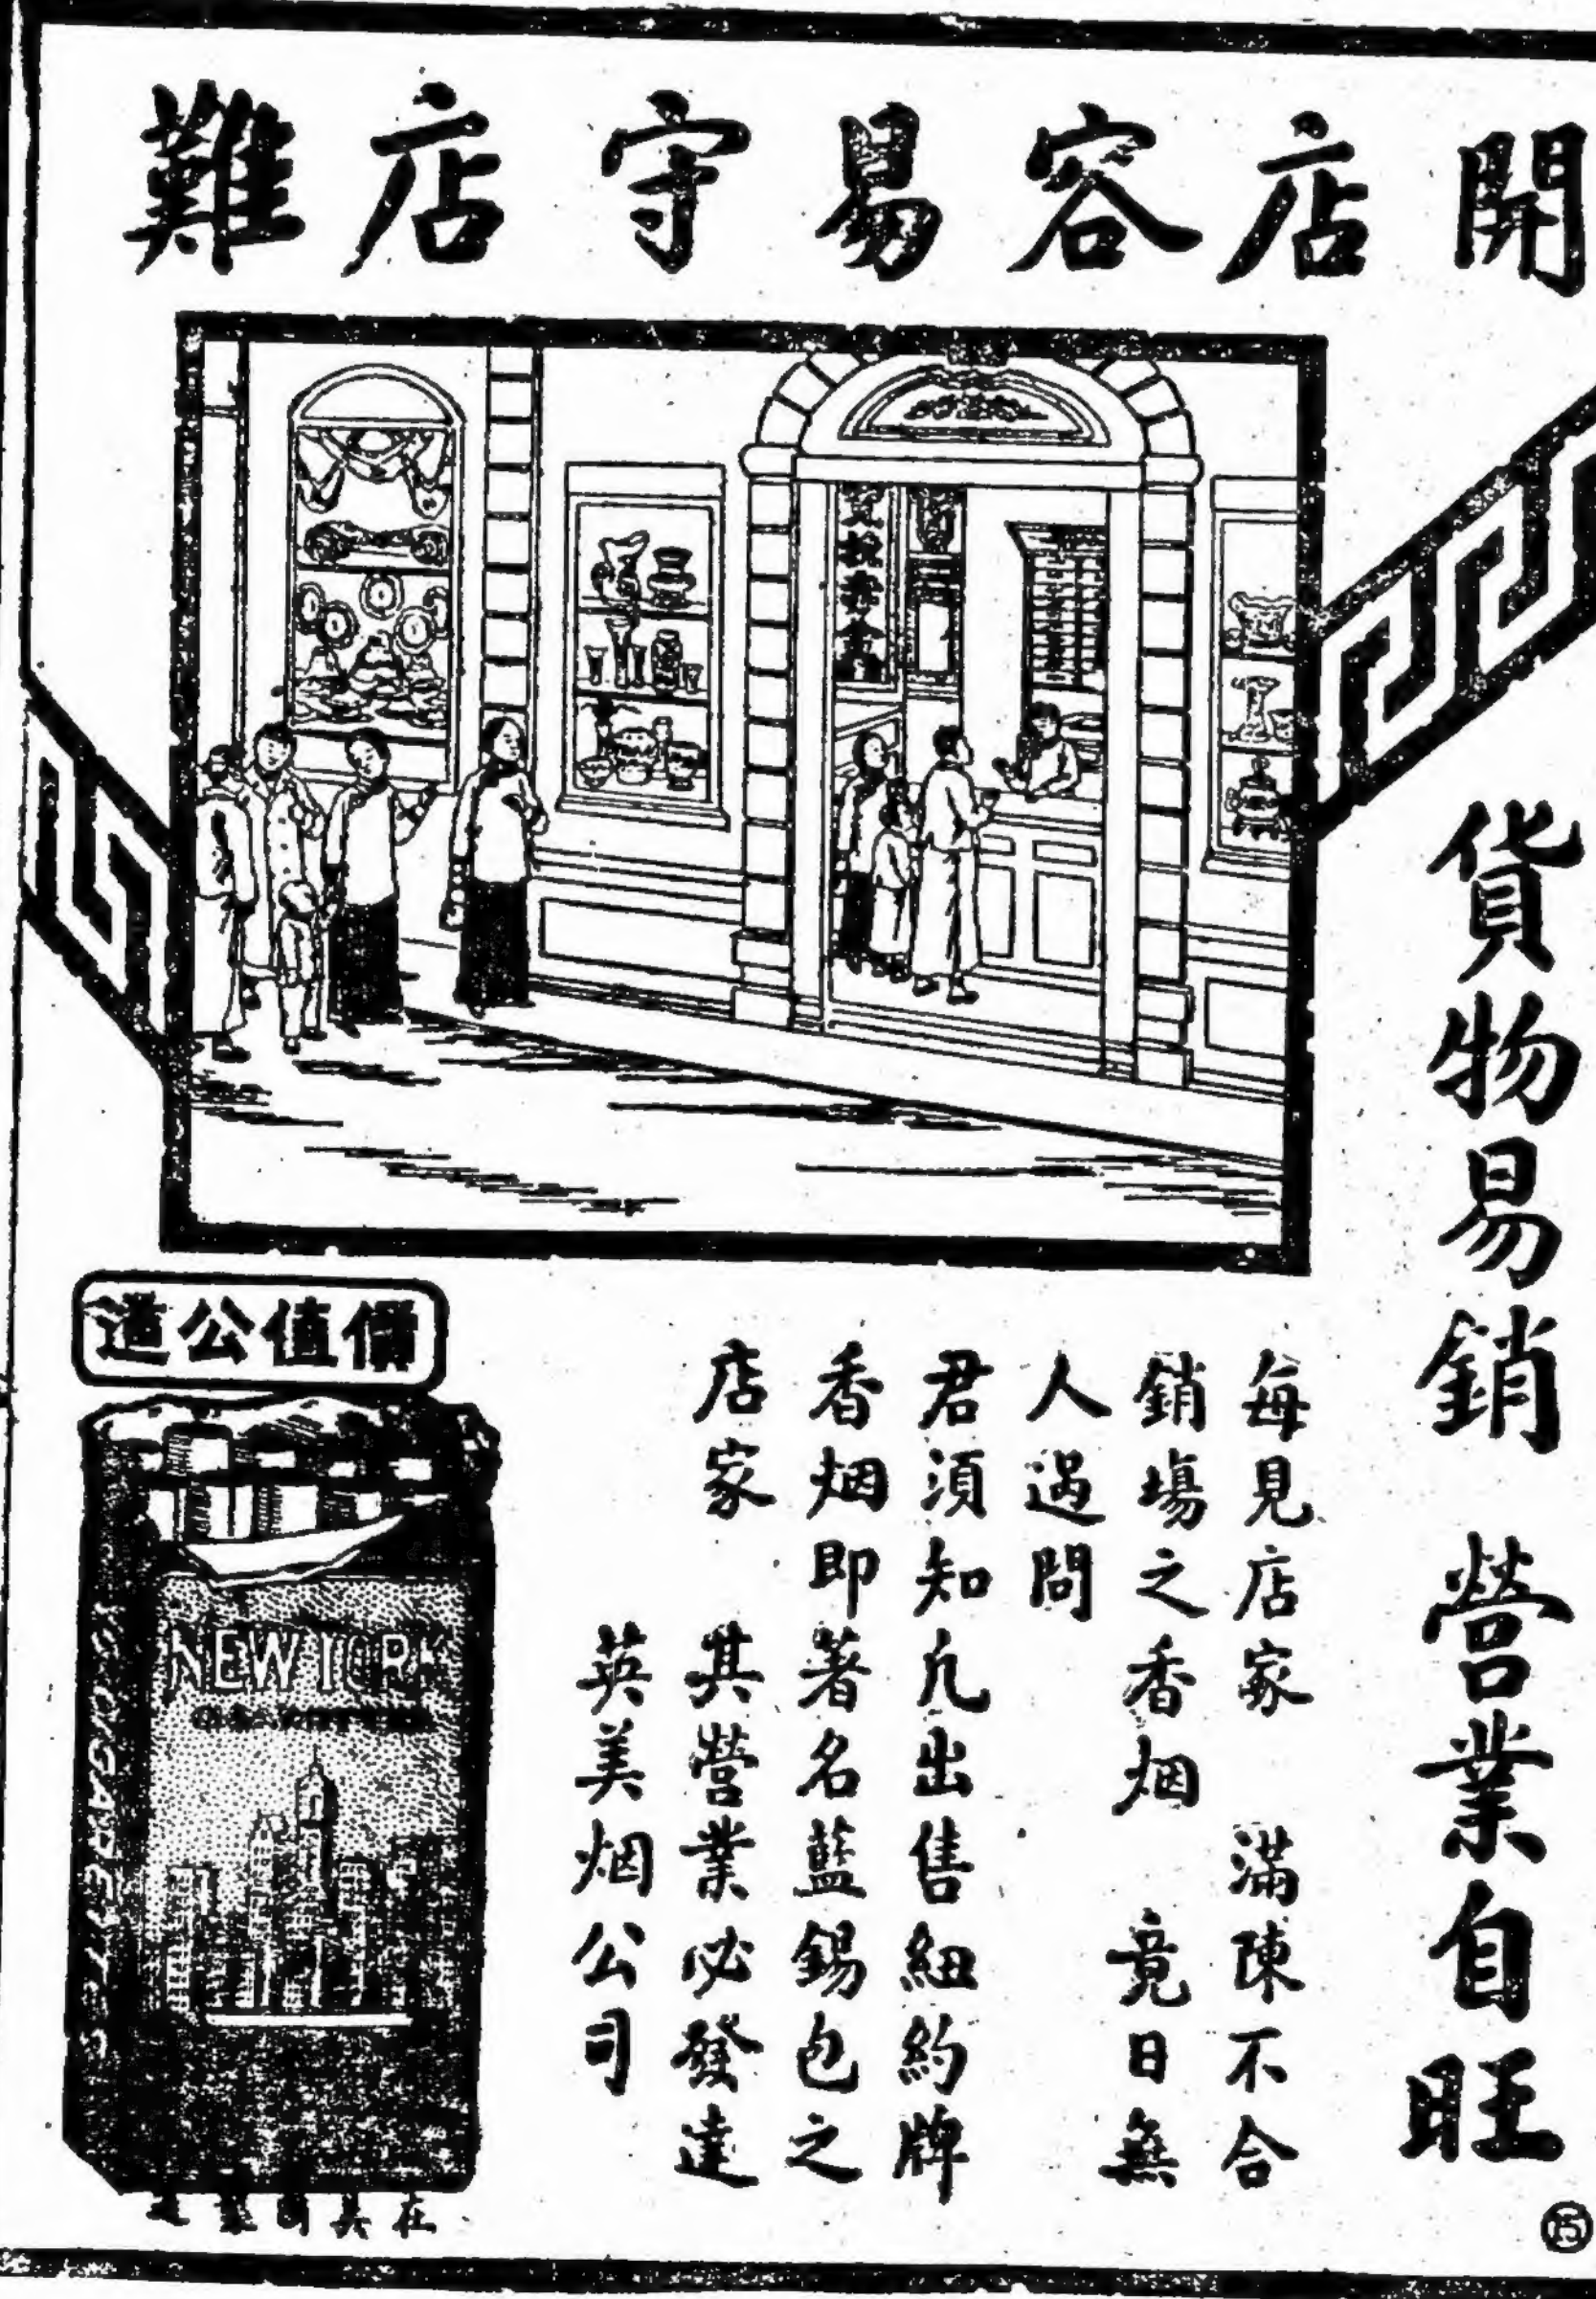 開店容易守店難
貨物易銷　營業自旺
每見店家　滿陳不合
銷場之香烟　竟日無
人過問
君須知凡出售紐約牌
香烟即著名藍錫包之
店家　其營業必發達
英美烟公司
價值公道
NEW YORK
CIGARETTES
在美國製造
15